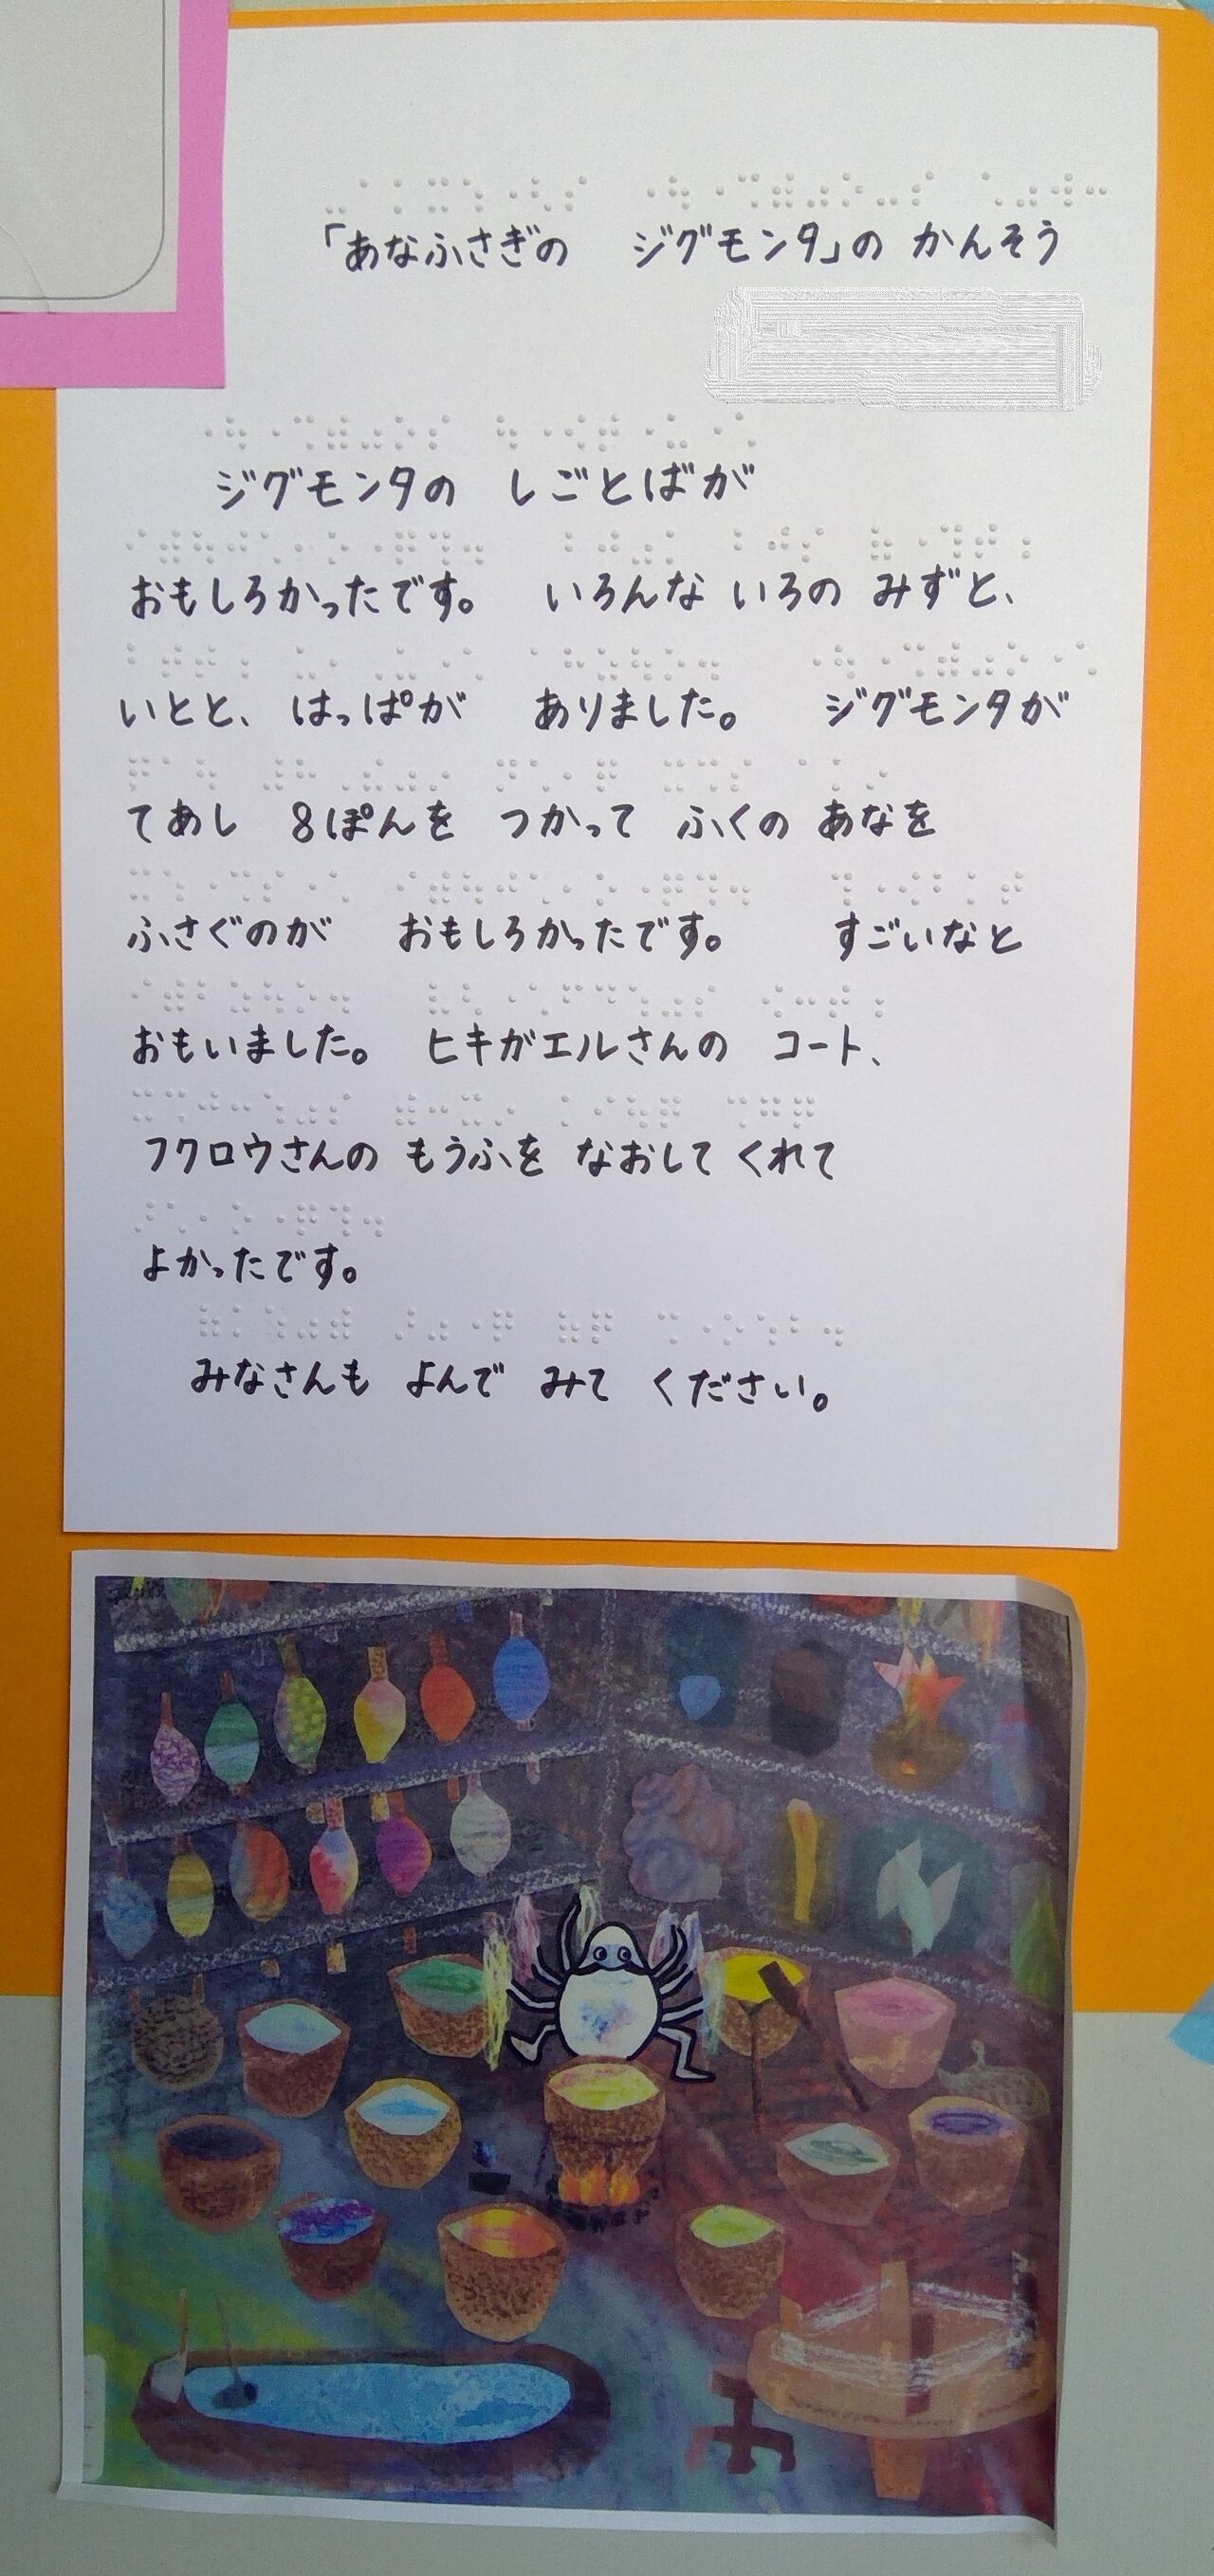 「あなふさぎの　ジグモンタ」の　かんそう
ジグモンタの　しごとばが
おもしろかったです。　いろんな　いろの　みずと、
いとと、　はっぱが　ありました。　ジグモンタが
てあし　8ぽんを　つかって　ふくの　あなを
ふさぐのが　おもしろかったです。　すごいなと
おもいました。　ヒキガエルさんの　コート、
フクロウさんの　もうふを　なおして　くれて
よかったです。
みなさんも　よんで　みて　ください。